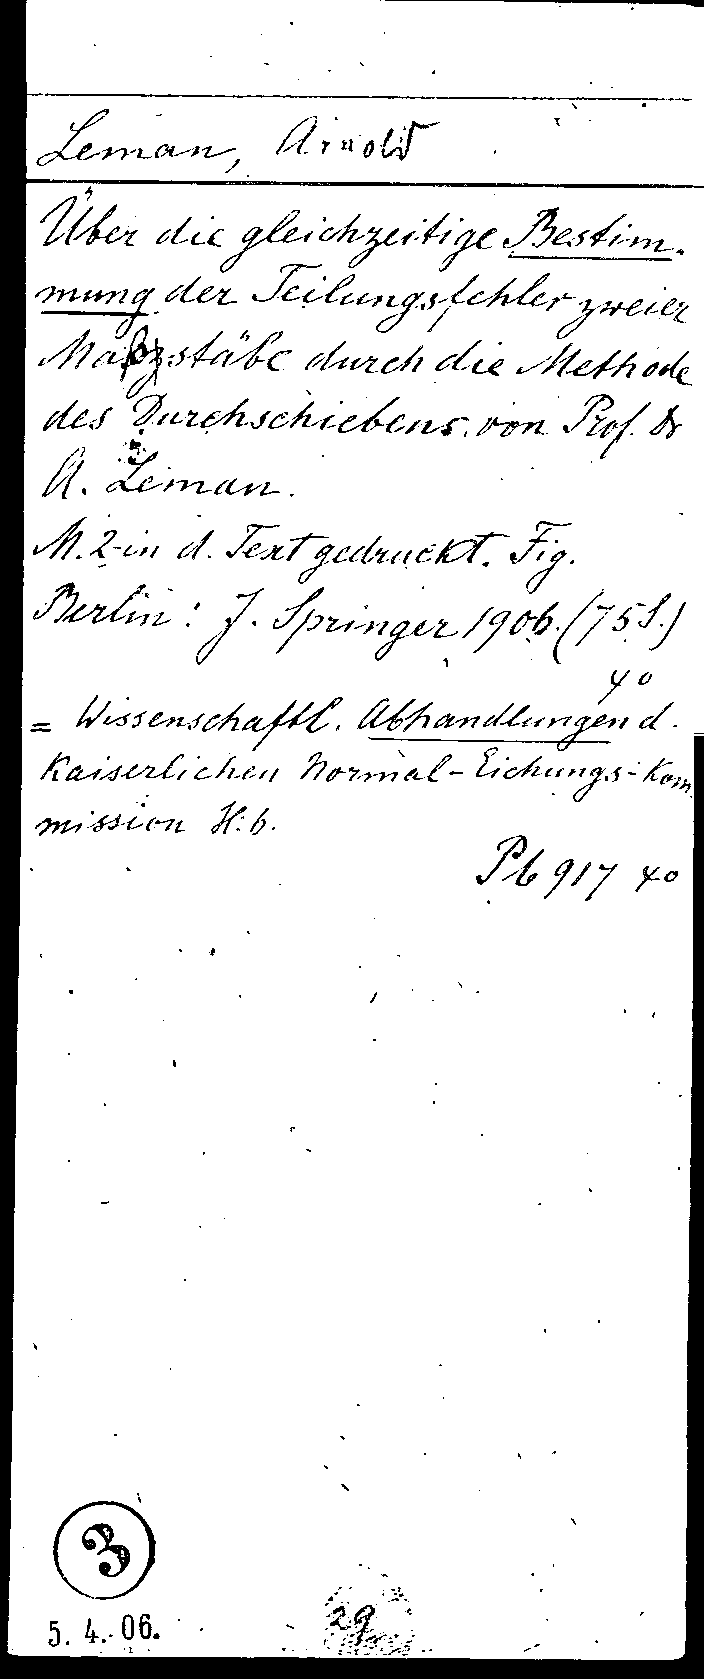 Leman, Arnold
Über die gleichzeitige Bestim-
mung der Teilungsfehler zweier
Maßstäbe durch die Methode
des Durchschiebens von Prof. Dr
A. Leman.
M. 2 in d. Text gedruckt. Fig.
Berlin: J. Springer 1906. (75 S.)
4°
= Wissenschaftl. Abhandlungen d.
Kaiserlichen Normal-Eichungs-Kom
mission H. 6.
Pb 917 4°
3
5. 4. 06.
29